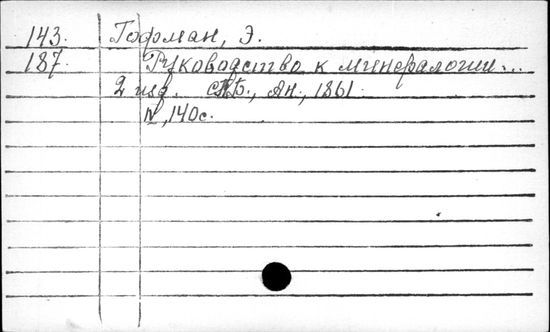 143. Гофман, Э.
187. Руководство к минералогии...
2 изд. СПБ., Ан., 1861
IV, 140с.